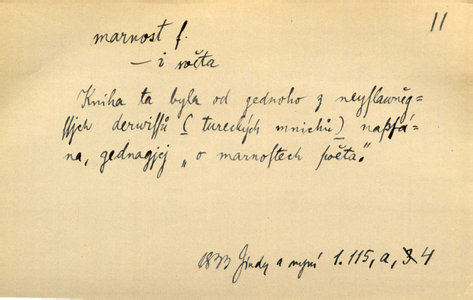 11
marnost f.
– i světa
Kniha ta byla od gednoho z neyslawněg=
ssjch derwissů (tureckých mnichů) napsá=
na, gednagjcj „o marnostech swěta."
1833 Jindy a nynj 1. 115, a, 4